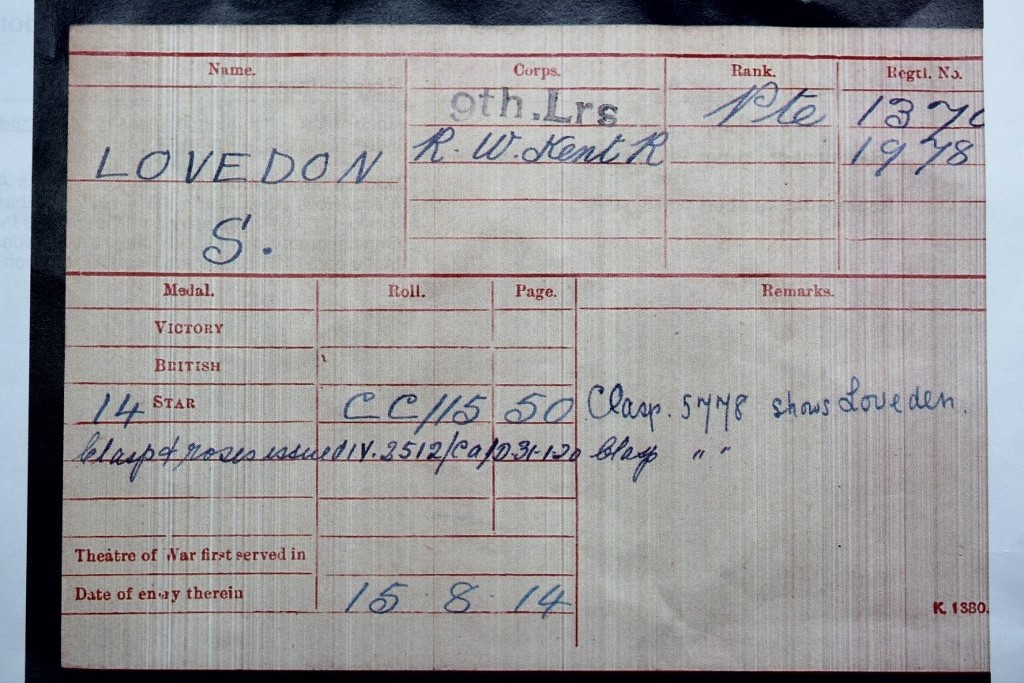 Name. Corps. Rank. Regtl. No.
9th. Lrs Pte 1370
LOVEDON R. W. Kent R 1978
S.
Medal. Roll. Page. Remarks.
VICTORY
BRITISH
14 STAR CC/115 50 Clasp. 5778 shows Loveden.
Clasp & roses issued IV. 3512/Ca/D 31-1-20 Clasp " "
Theatre of War first served in
Date of entry therein 15 8 14
K. 1380.